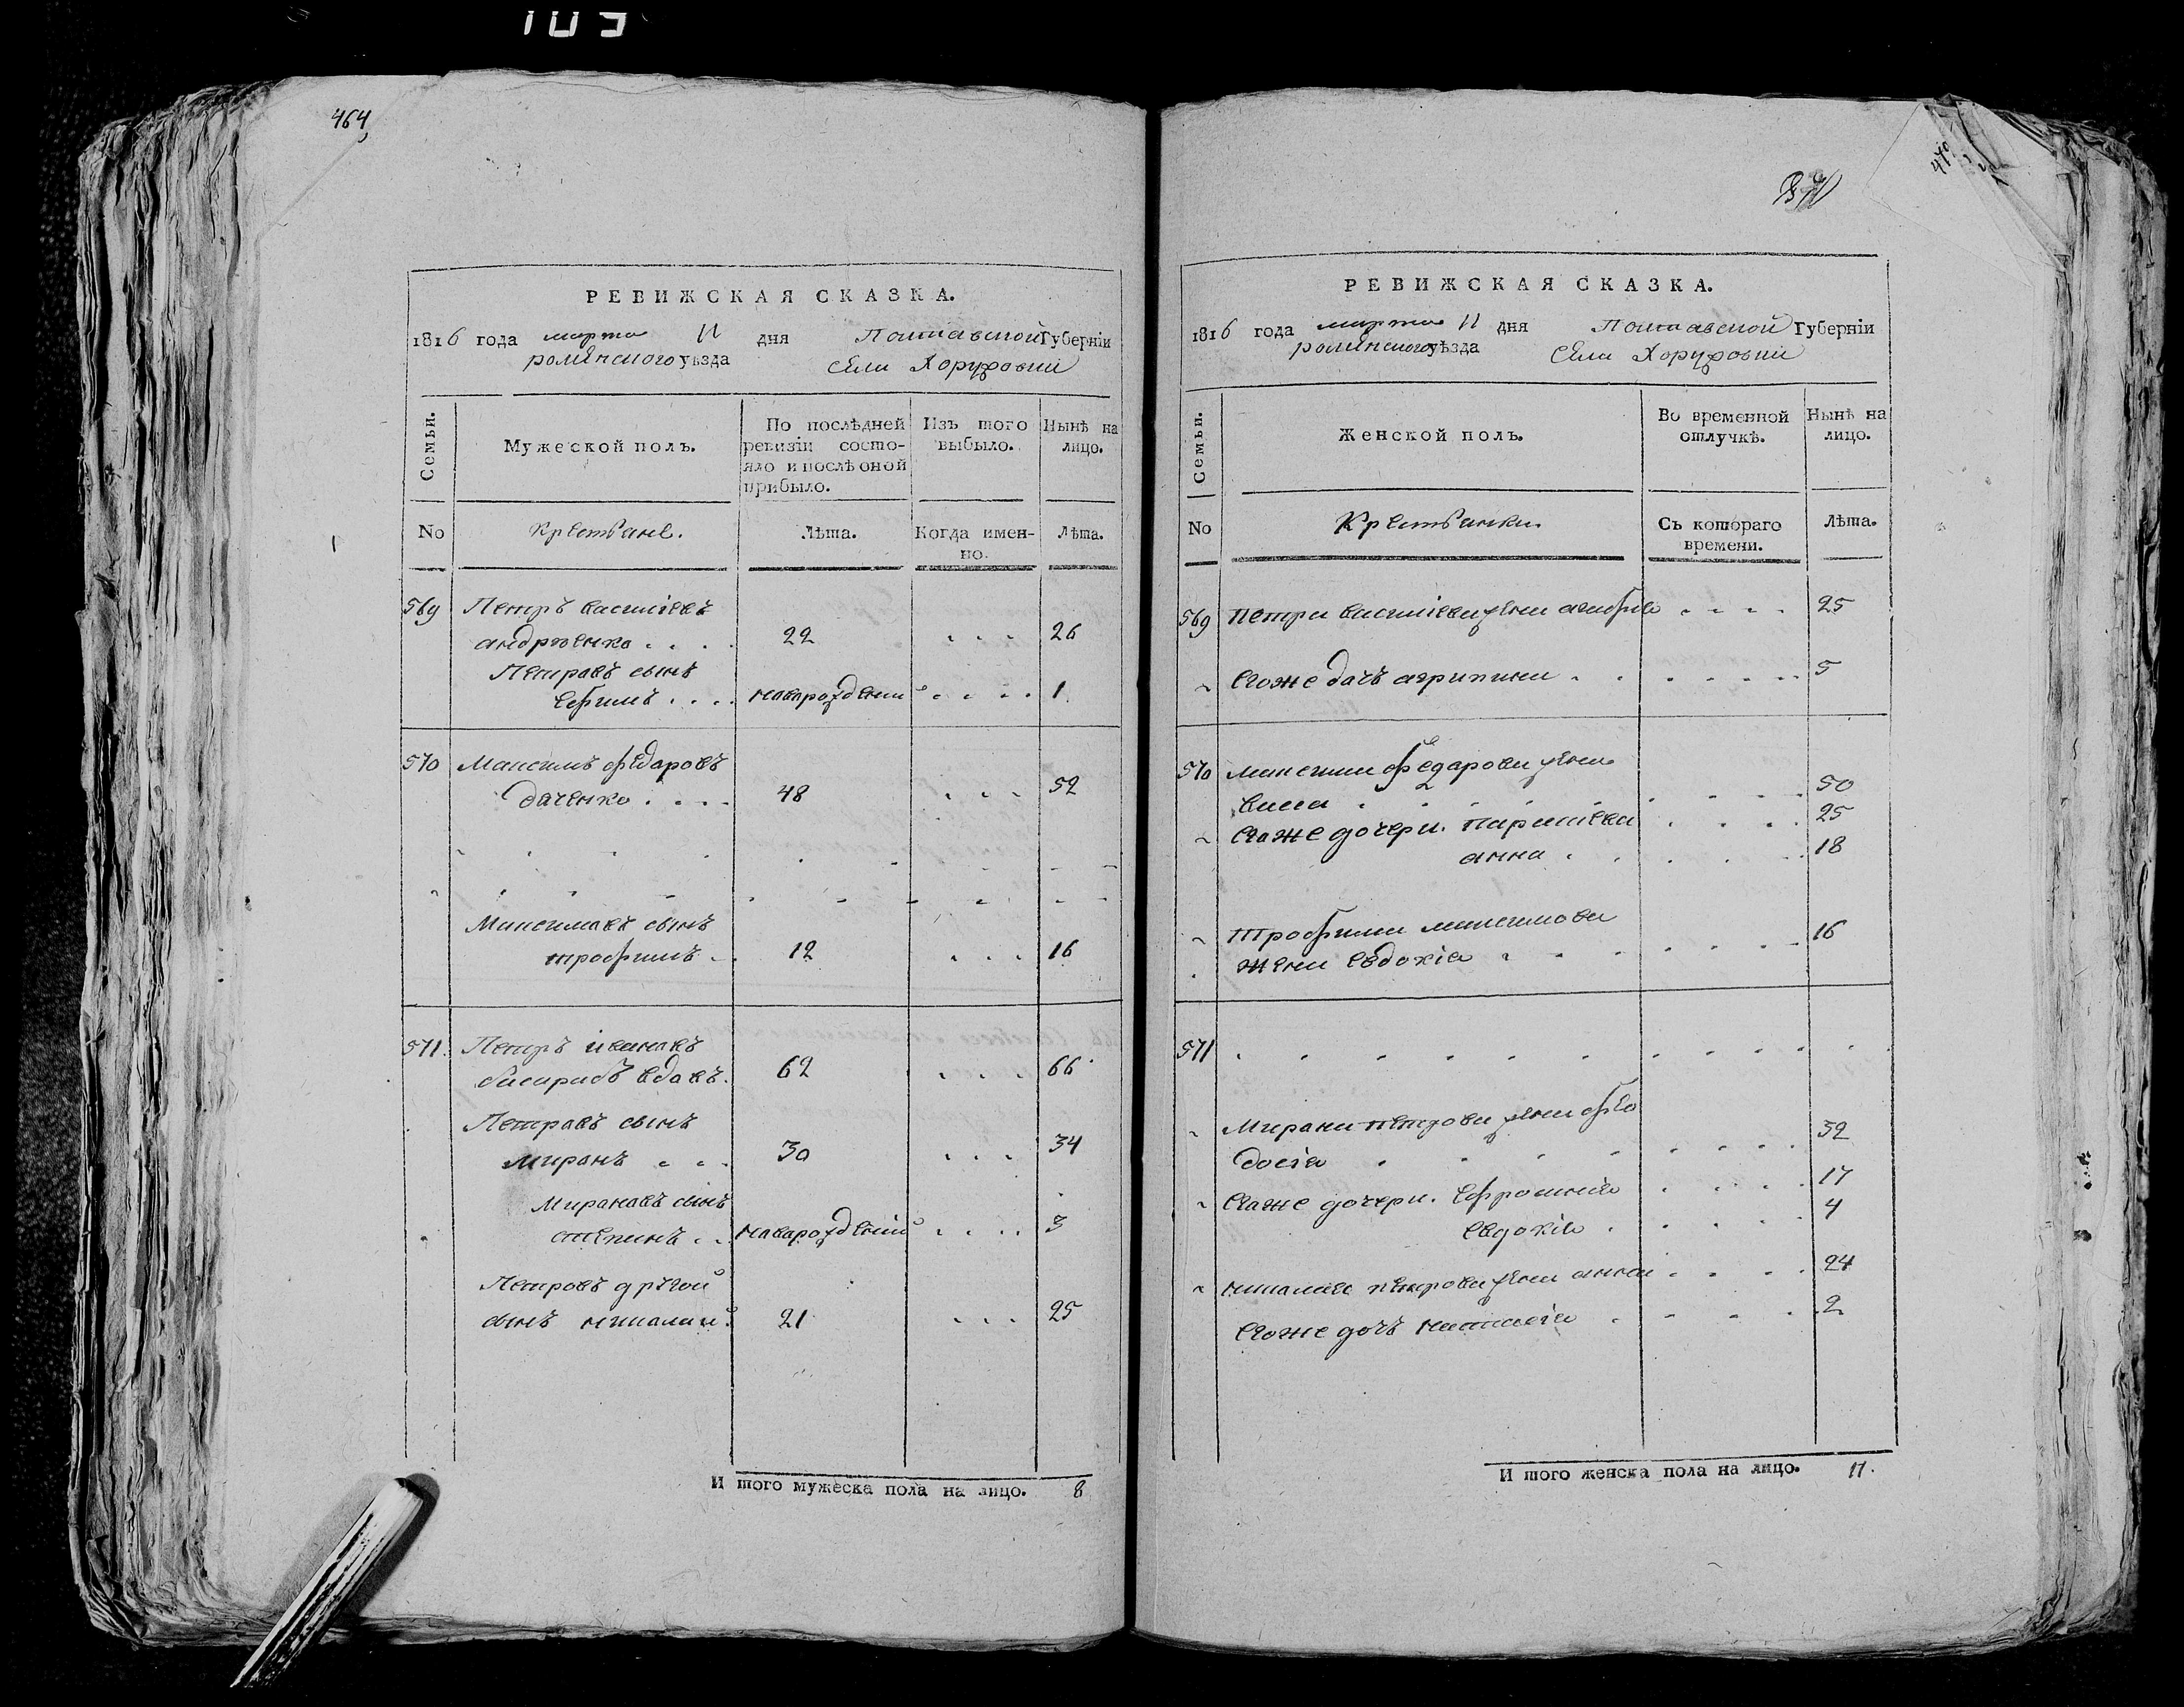 464
РЕВИЖСКАЯ СКАЗКА.
1816 года марта 11 дня Полтавской Губерніи
роменского уѣзда Села Хоружовки
Семьи.
Мужеской полъ.
По послѣдней ревизіи состо-
яло и послѣ оной
прибыло.
Изъ того
выбыло.
Нынѣ на
лицо.
No
Крестьяне.
Лѣта.
Когда имен-
но.
Лѣта.
569 Петръ василіевъ
андрѣенко . . . . 22 . . . 26
Петровъ сынъ
Ефимъ . . . . новорожденній . . . . 1
570 Максимъ федоровъ
даченко . . . . 48 . . . 52
Максимовъ сынъ
трофимъ . . 12 . . . 16
571 Петръ івановъ
вдовъ. 62 . . . 66
Петровъ сынъ
миронъ . . . 30 . . . 34
Мироновъ сынъ
степанъ . . новорожденій . . . . 3
Петровъ другой
сынъ николай 21 . . . 25
И того мужеска пола на лицо. 8
РЕВИЖСКАЯ СКАЗКА.
1816 года марта 11 дня Полтавской Губерніи
роменского уѣзда Села Хоружовки
Семьи.
Женской полъ.
Во временной
отлучкѣ.
Нынѣ на
лицо.
No
Крестьянки.
Съ котораго
времени.
Лѣта.
569 Петра василіева жена . . . . 25
Егоже дочъ агрипина . . . . . . . 5
570 максима федорова жена
васса . . . . . . . . . 50
Егоже дочери. параскева . . . . 25
анна . . . . . . 18
трофима максимова
жена Евдокіа . . . . . . . 16
571
Мирона петрова жена фео
досіа . . . . . . . . 32
Егоже дочери. Ефросиніа . . . . 17
Евдокіа . . . . . . 4
николая петрова жена анна . . . . 24
Егоже дочъ наталіа . . . . 2
И того женска пола на лицо. 11.